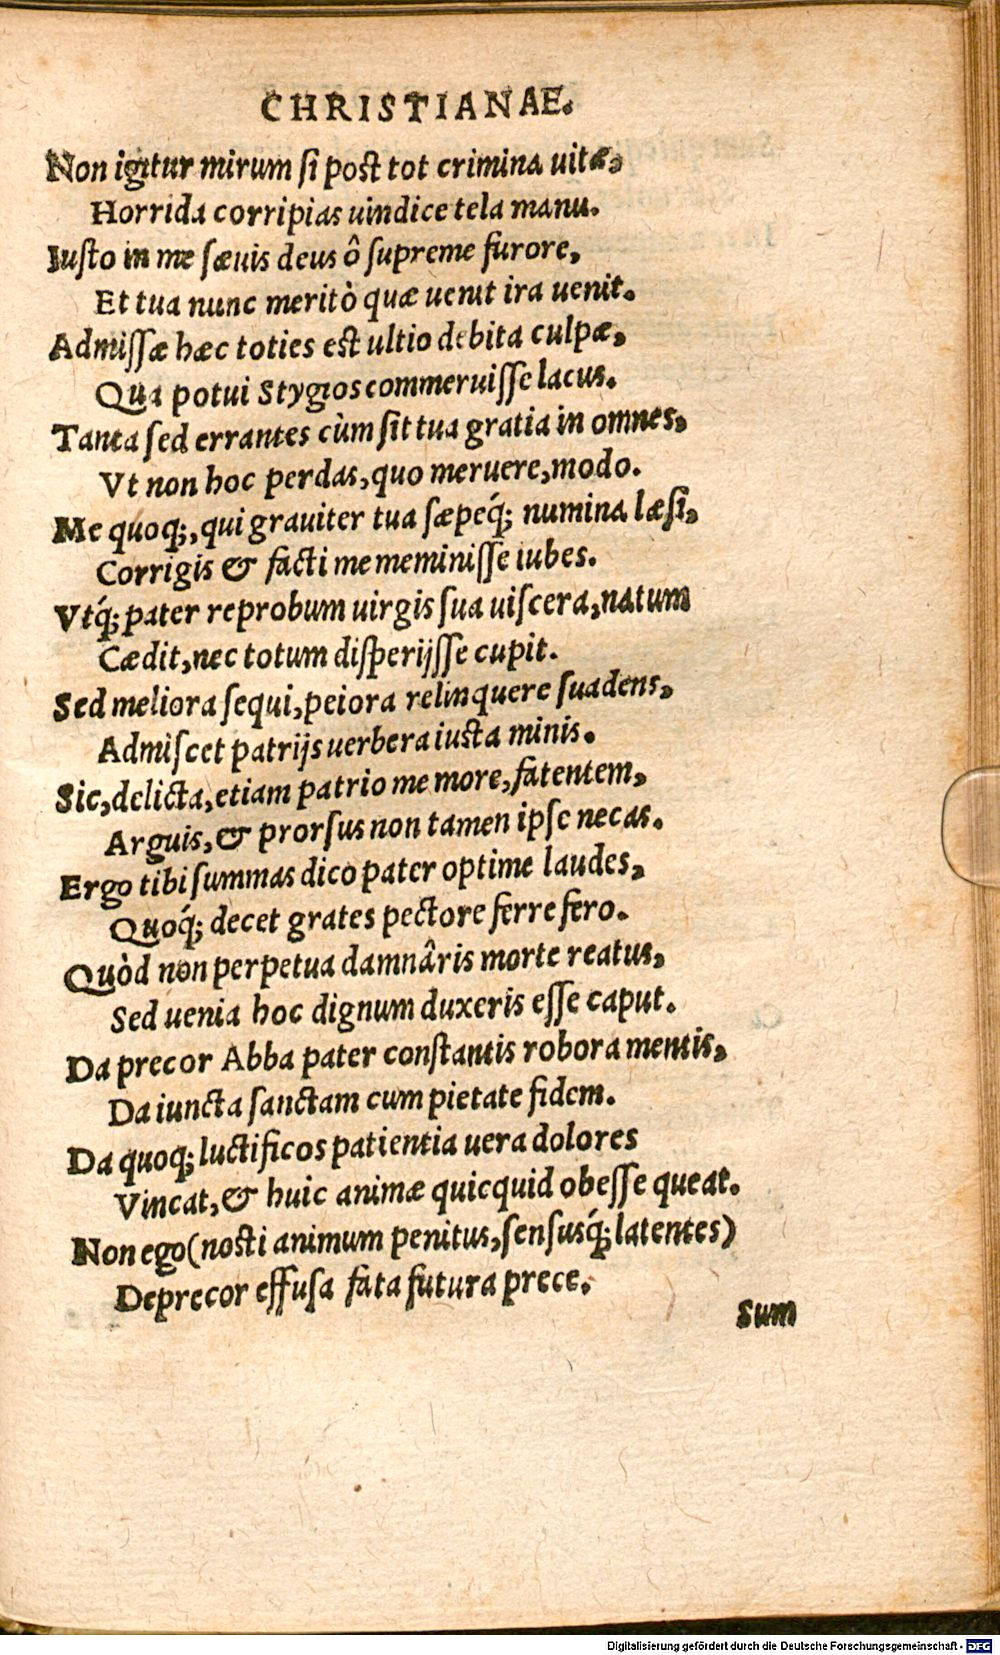 CHRISTIANAE.
Non igitur mirum ſi poſt tot crimina uitæ,
Horrida corripias uindice tela manu.
Iuſto in me ſæuis deus ô ſupreme furore,
Et tua nunc meritò quæ uenit ira uenit.
Admiſſæ hæc toties eſt ultio debita culpæ,
Qua potui Stygios commeruiſſe lacus.
Tanta ſed errantes cùm ſit tua gratia in omnes,
Vt non hoc perdas, quo meruere, modo.
Me quoq;, qui grauiter tua ſæpeq́; numina læſi,
Corrigis & facti me meminiſſe iubes.
Vtq́; pater reprobum uirgis ſua uiſcera, natum
Cædit, nec totum diſperijſſe cupit.
Sed meliora ſequi, peiora relinquere ſuadens,
Admiſcet patrijs uerbera iuſta minis.
Sic, delicta, etiam patrio me more, fatentem,
Arguis, & prorſus non tamen ipſe necas.
Ergo tibi ſummas dico pater optime laudes,
Quoq́; decet grates pectore ferre fero.
Quòd non perpetua damnâris morte reatus,
Sed uenia hoc dignum duxeris eſſe caput.
Da precor Abba pater conſtantis robora mentis,
Da iuncta ſanctam cum pietate fidem.
Da quoq; luctificos patientia uera dolores
Vincat, & huic animæ quicquid obeſſe queat.
Non ego (noſti animum penitus, ſenſusq́; latentes)
Deprecor effuſa fata futura prece.
Sum
Digitalisierung gefördert durch die Deutsche Forschungsgemeinschaft - DFG